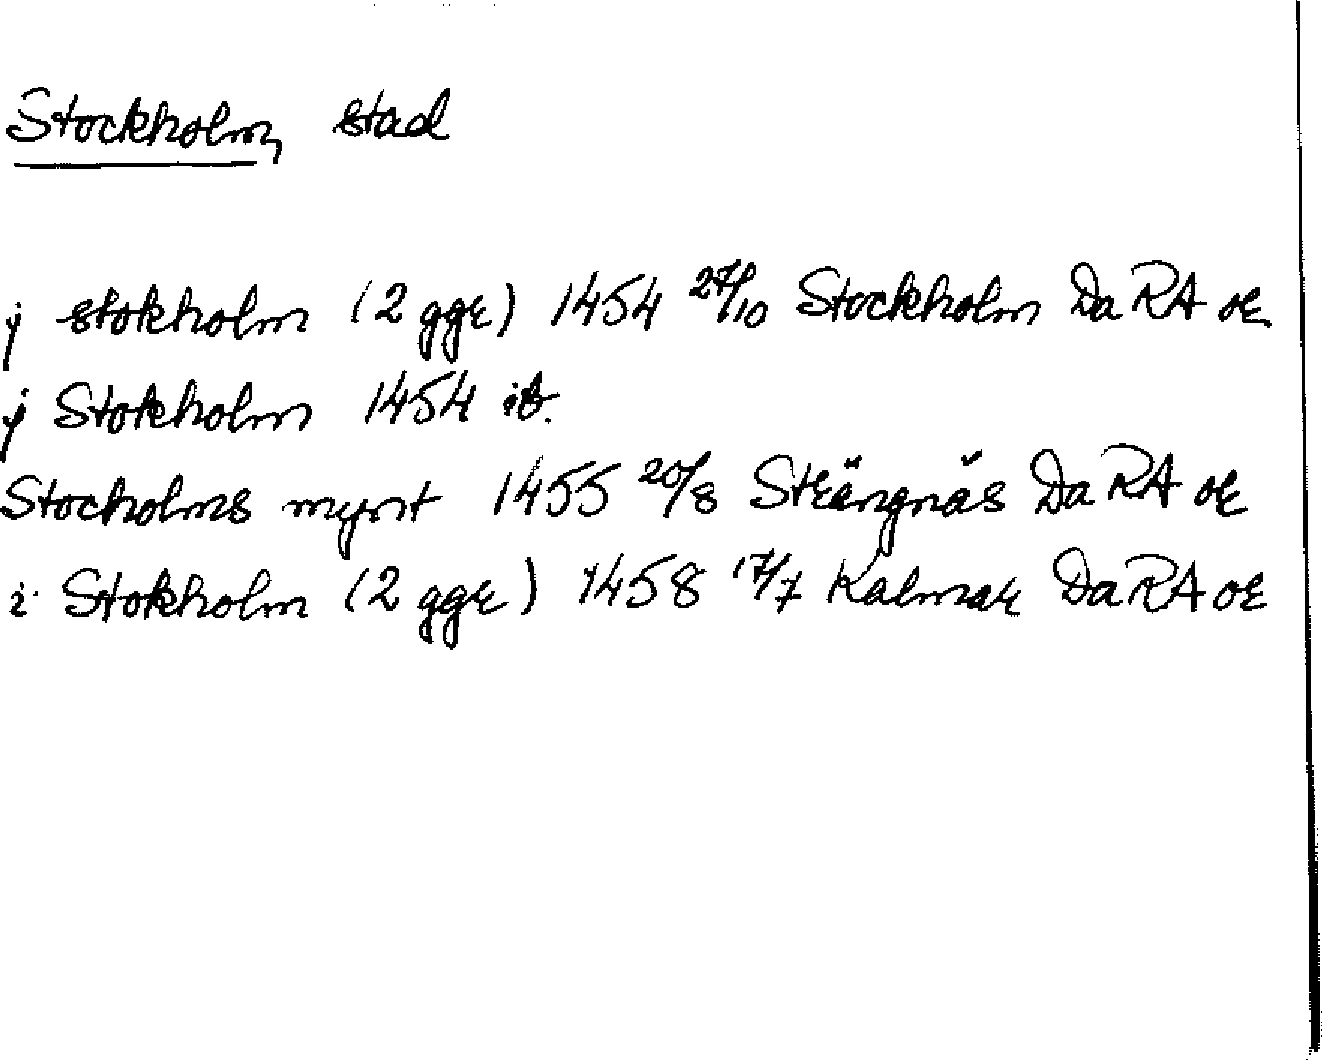 Stockholm, stad
j stokholm (2 ggr) 1454 27/10 Stockholm Da RA or.
j Stokholm 1454 ib.
Stocholms mynt 1455 20/8 Strängnäs Da RA or
i Stokholm (2 ggr) 1458 17/7 Kalmar Da RA or